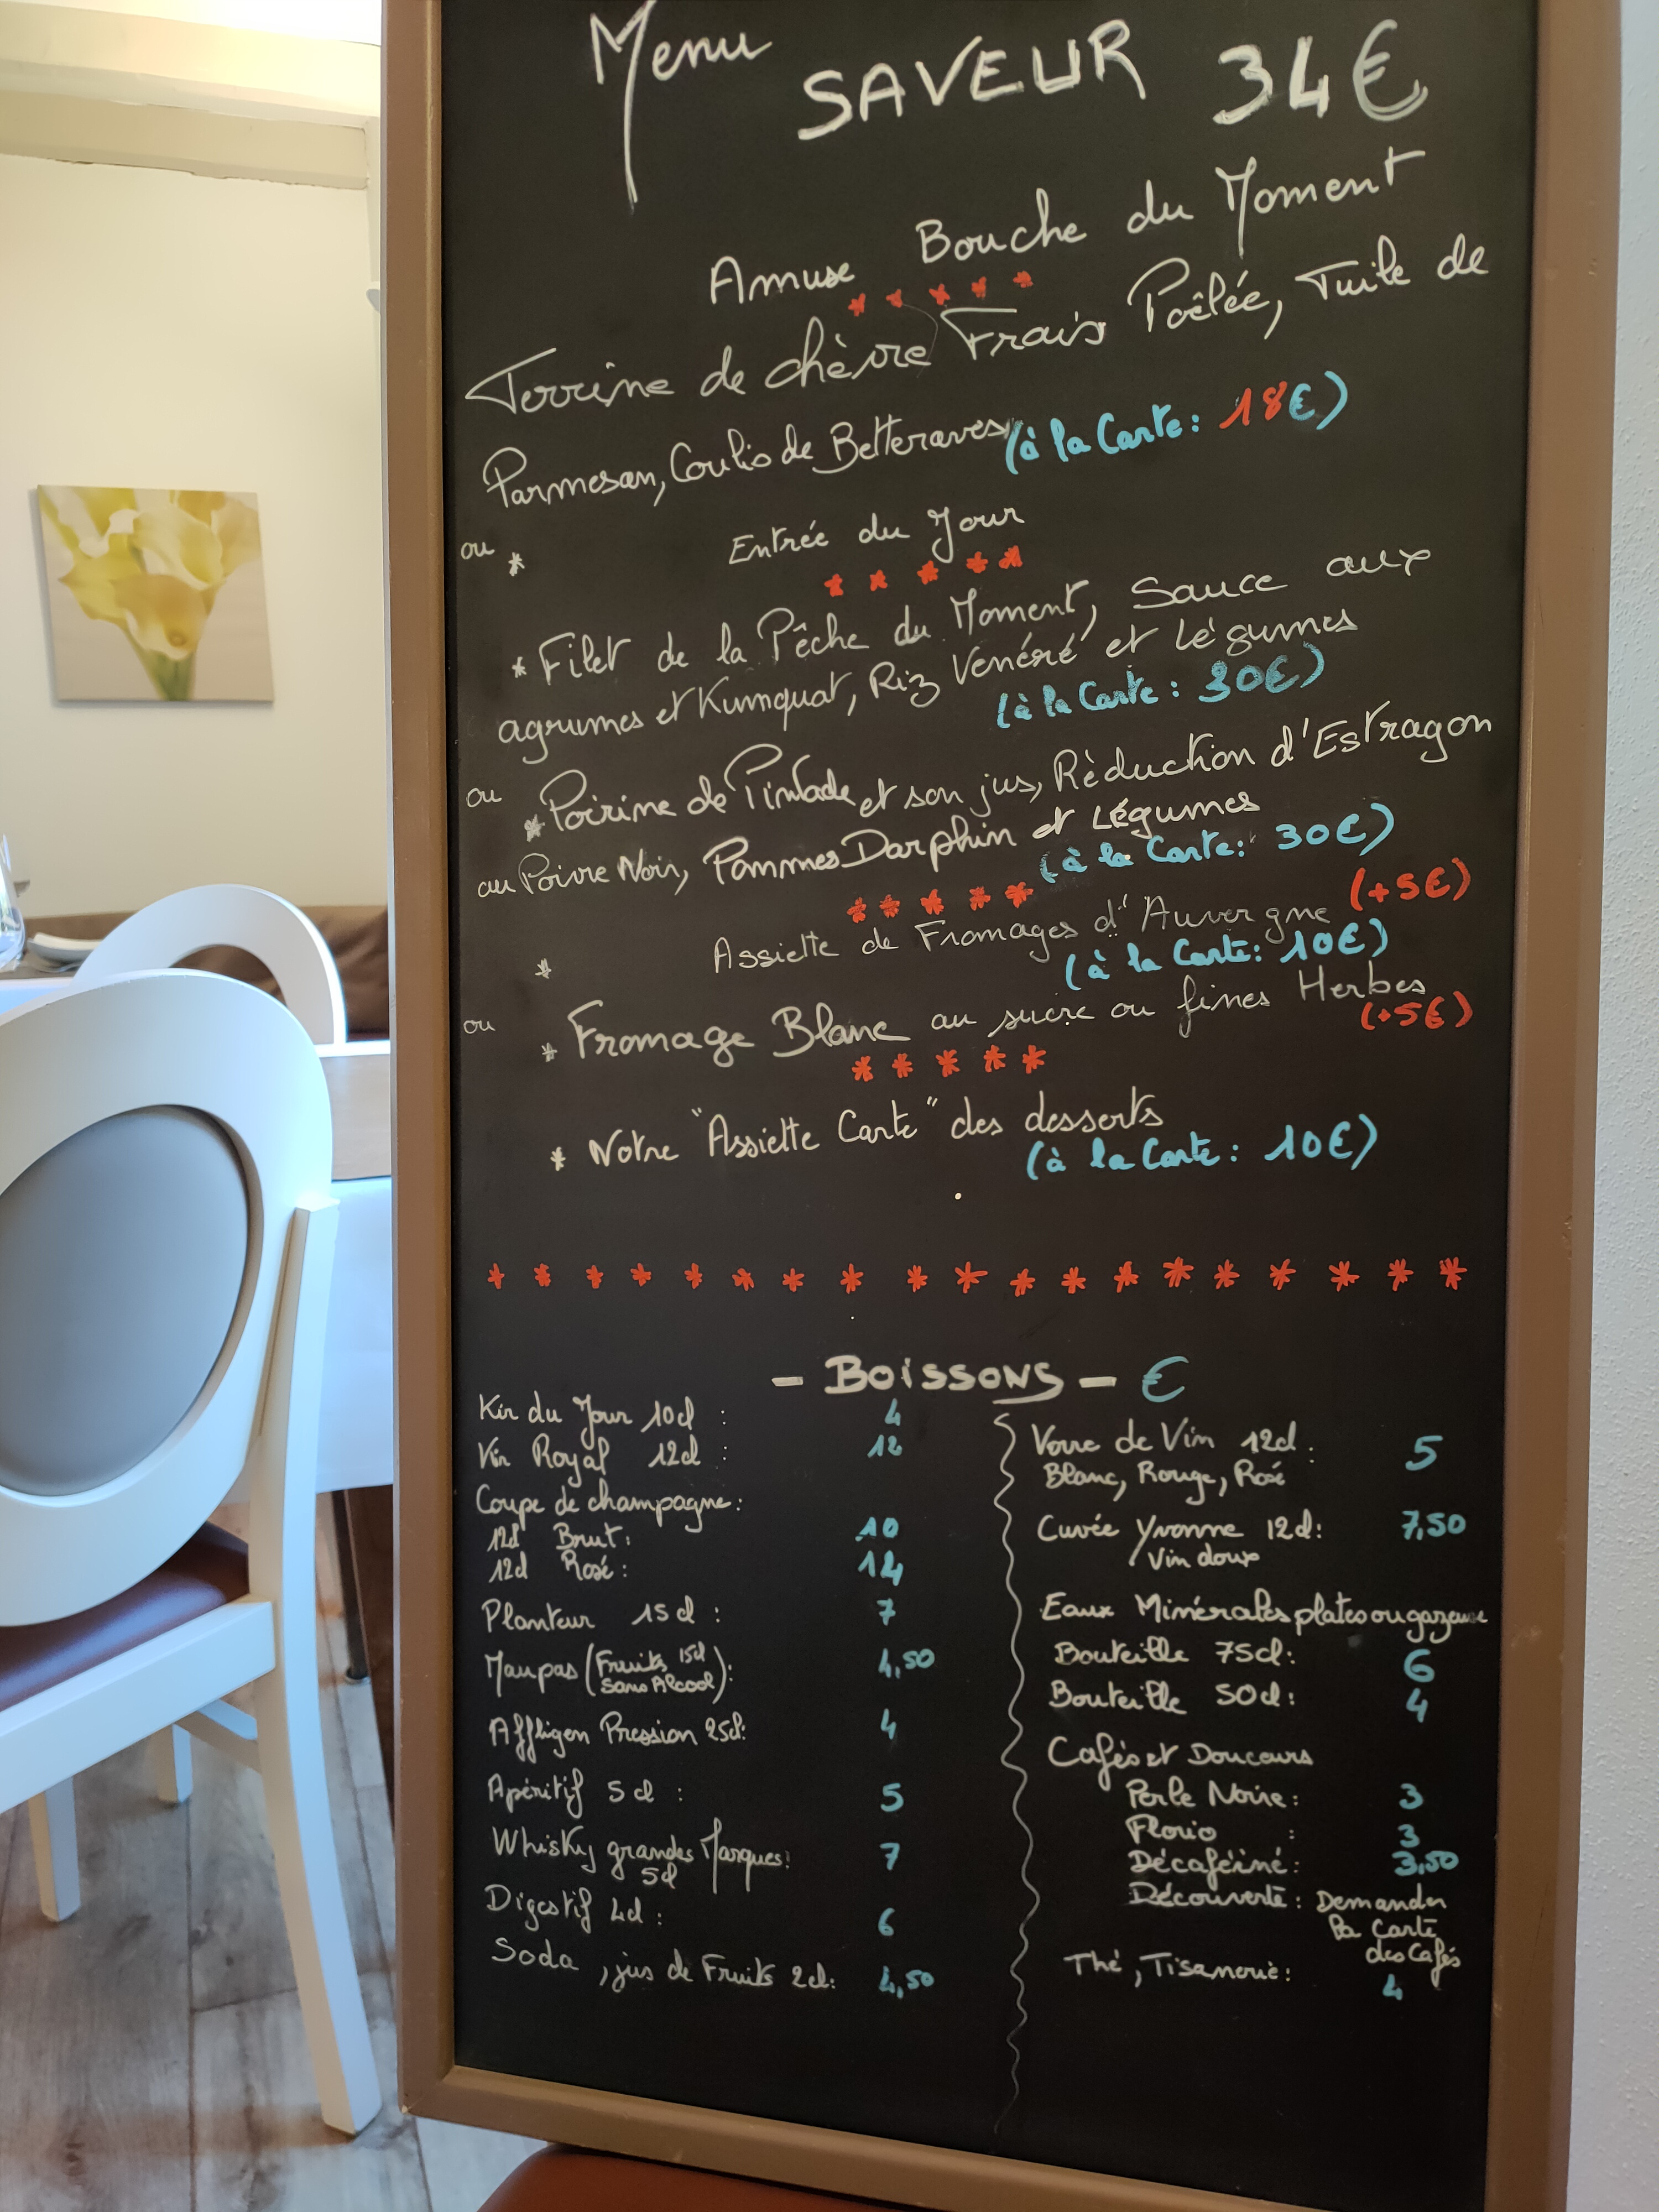 Menu SAVEUR 34€
Amuse Bouche du Moment
* * * * *
Terrine de chèvre Frais Poêlée, Tuile de
Parmesan, Coulis de Betteraves (à la Carte: 18€)
ou * Entrée du Jour
* * * * *
* Filet de la Pêche du Moment, Sauce aux
agrumes et Kumquat, Riz Vénéré et Légumes
(à la Carte: 30€)
ou * Poirine de Pintade et son jus, Rèduction d'Estragon
au Poivre Noir, Pommes Darphin et Légumes
(à la Carte: 30€)
* * * * *
* Assiette de Fromages d'Auvergne (+5€)
(à la Carte: 10€)
ou * Fromage Blanc au sucre ou fines Herbes
(+5€)
* * * * *
* Notre "Assiette Carte" des desserts
(à la Carte: 10€)
* * * * * * * * * * * * * * * * * * *
- BOISSONS - €
Kir du Jour 10cl : 4
Kir Royal 12cl : 12
Coupe de champagne:
12cl Brut: 10
12cl Rosé: 14
Planteur 15cl : 7
Maupas (Fruits 15cl
Sans Alcool): 4,50
Affligen Pression 25cl: 4
Apéritif 5cl : 5
Whisky grandes Marques: 7
5cl
Digestif 4cl : 6
Soda, jus de Fruits 2cl: 4,50
Verre de Vin 12cl : 5
Blanc, Rouge, Rosé
Cuvée Yvonne 12cl: 7,50
Vin doux
Eaux Minérales plates ou gazeuse
Bouteille 75cl: 6
Bouteille 50cl: 4
Cafés et Douceurs
Perle Noire: 3
Florio : 3
Décaféiné: 3,50
Découverte: Demander
la Carte
des Cafés
Thé, Tisanerie: 4